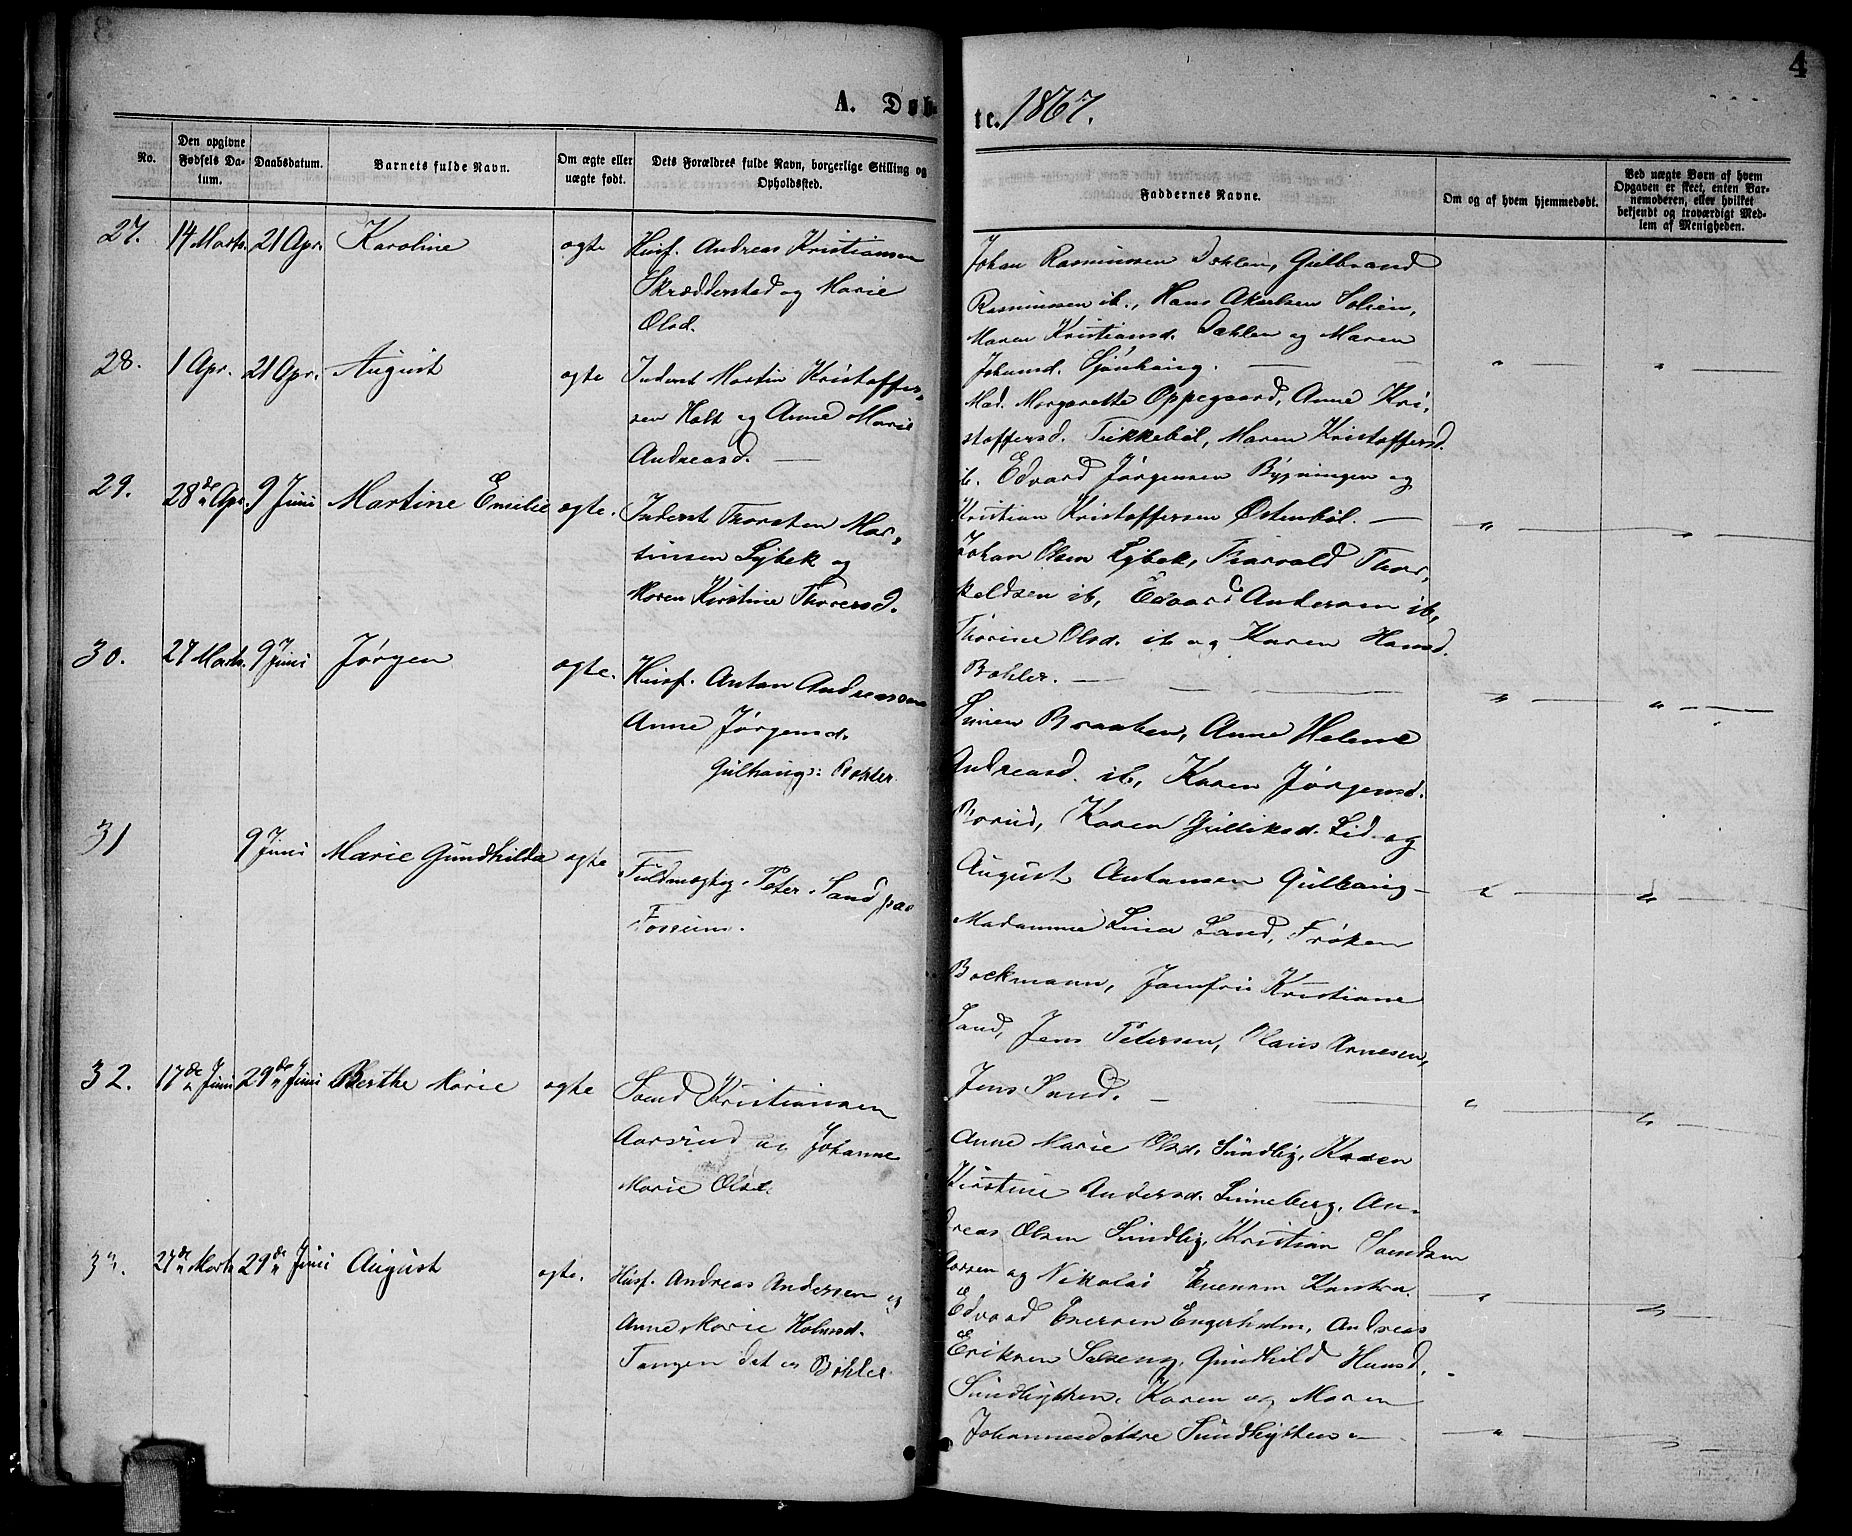 8
A. Døb-
No.
Den opgivne Fødsels Datum.
Daabsdatum.
Barnets fulde Navn.
Om ægte eller uægte født.
Dets Forældres fulde Navn, borgerlige Stilling og Opholdssted.
27. 14 Marts. 21 Apr. Karoline ægte Husf. Andreas Kristiansen
Skrædderstad og Marie
Olsd.
28. 1 Apr. 21 Apr. August ægte Inderst Martin Kristoffer-
sen Holt og Anne Marie
Andreasd. —
29. 28de Apr. 9 Juni Martine Emilie ægte. Inderst Thorsten Mar-
tinsen Lybek og
Maren Kirstine Thoresd.
30. 27 Marts. 9 Juni Jørgen ægte. Husf. Anton Andreassen
Anne Jørgensd.
Gulhaug: Bøhler.
31 9 Juni Marie Gundhilda ægte Fuldmægtig Peter Sand paa
Fossum.
32. 17de Juni 29de Juni Berthe Marie ægte Svend Kristiansen
Aarsrud og Johanne
Marie Olsd.
33. 27de Marts 29de Juni August ægte. Husf. Andreas Andersen og
Anne Marie Halvorsd.
Tangen
4
te. 1867.
Faddernes Navne.
Om og af hvem hjemmedøbt.
Ved uægte Børn af hvem Opgaven er skeet, enten Barnemoderen, eller hvilket bekjendt og troværdigt Medlem af Menigheden.
Johan Rasmussen Dæhlen, Gulbrand
Rasmussen ib., Hans Akselsen Solien,
Maren Kristiansd. Dæhlen og Maren
Johansd. —
Mad. Margarette Oppegaard, Anne Kri-
stoffersd. Tukkebøl, Maren Kristoffersd.
ib. Edvard Jørgensen Bygningen og
Kristian Kristoffersen Østenbøl. —
Johan Olsen Lybek, Tharvald Thor-
keldsen ib, Edvard Andersen ib,
Thorine Olsd. ib og Karen Hansd.
Bøhler. —
Simen Braaten, Anne Helene
Andreasd. ib, Karen Jørgensd.
Borud, Karen Gulliksd. Lid og
August Antonsen Gulhaug —
Madamme Lina Sand, Frøken
Bockmann, Jomfru Kristiane
Sand, Jens Petersen, Olaus Arnesen,
Jens Sand. —
Anne Marie Olsd. Sundby, Karen
Kirstine Andersd. Linneberg, An-
dreas Olsen Sundby, Kristian Svendsen
og Nikolai
Edvard Iversen Engerholm, Andreas
Eriksen Gundhild Hansd.
Sundbytten, Karen og Maren
Johannesdøttre Sundbytten —